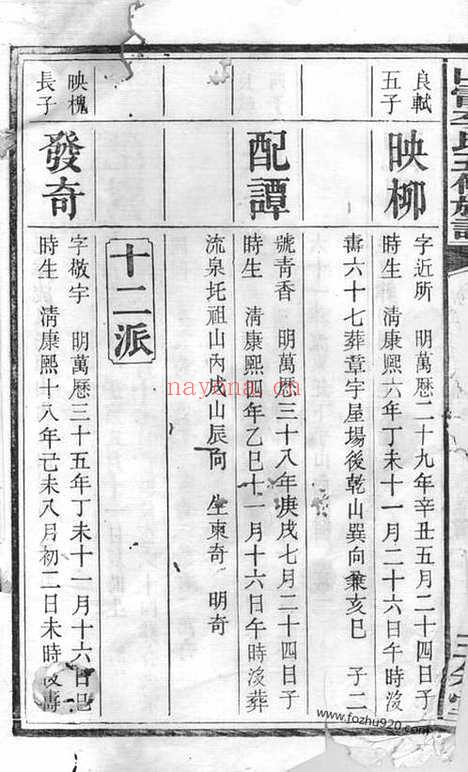 良軾
五子
映柳
字近所 明萬歷二十九年辛丑五月二十四日子
時生 清康熙六年丁未十一月二十六日午時沒
壽六十七葬章字屋場後乾山巽向兼亥巳 子二
配譚
號青香 明萬歷三十八年庚戌七月二十四日子
時生 清康熙四年乙巳十一月十六日午時沒葬
流泉圫祖山內戌山辰向 生東奇 明奇
十二派
映槐
長子
發奇
字敬宇 明萬歷三十五年丁未十一月十六日巳
時生 清康熙十八年己未八月初二日未時沒壽
nayona.cn
www.fozhu920.com